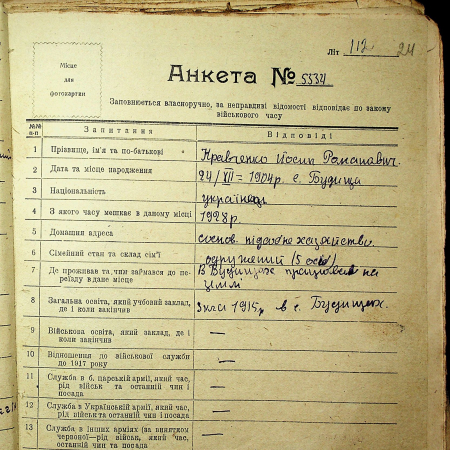 Літ 112 24
Місце
для
фотокартки
Анкета № 5334
Заповнюється власноручно, за неправдиві відомості відповідає по закону
військового часу
№№ п-п Запитання Відповіді
1 Прізвище, ім'я та по-батькові Кравченко Йосип Романович.
2 Дата та місце народження 24/XII=1904р. с. Будища
3 Національність українець
4 З якого часу мешкає в даному місці 1928 р.
5 Домашня адреса
6 Сімейний стан та склад сім'ї одружений (5 осіб)
7 Де проживав та чим займався до переїзду в дане місце В Будищах працював на землі
8 Загальна освіта, який учбовий заклад,
де і коли закінчив 1915р в с. Будищах.
9 Військова освіта, який заклад, де і
коли закінчив —
10 Відношення до військової служби
до 1917 року —
11 Служба в б. царській армії, який час,
рід військ та останній чин і
посада —
12 Служба в Українській армії, який час,
рід військ та останній чин і посада —
13 Служба в інших арміях (за винятком
червоної—рід військ, який час,
останній чин та посада —